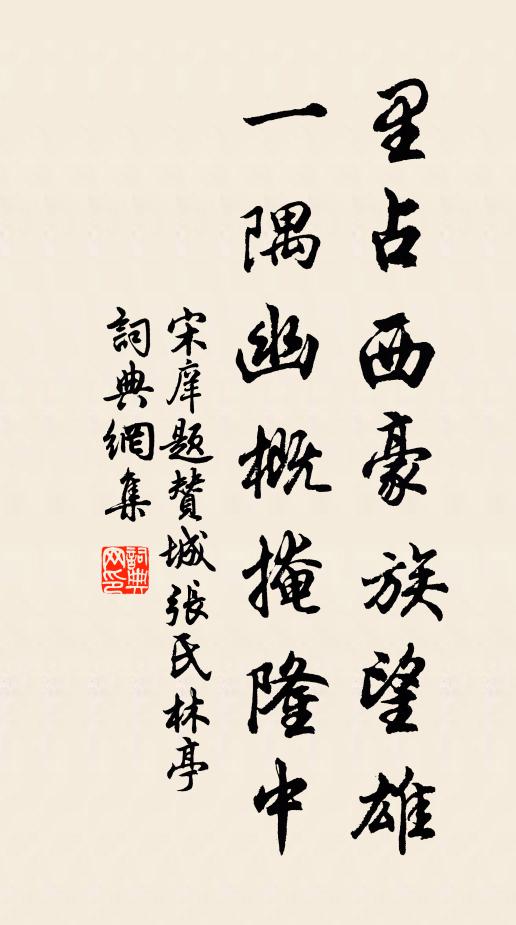 里占西豪族望雄
一隅幽概掩隆中
宋庠题赞城張氏林亭
詞典網集
詞典网印